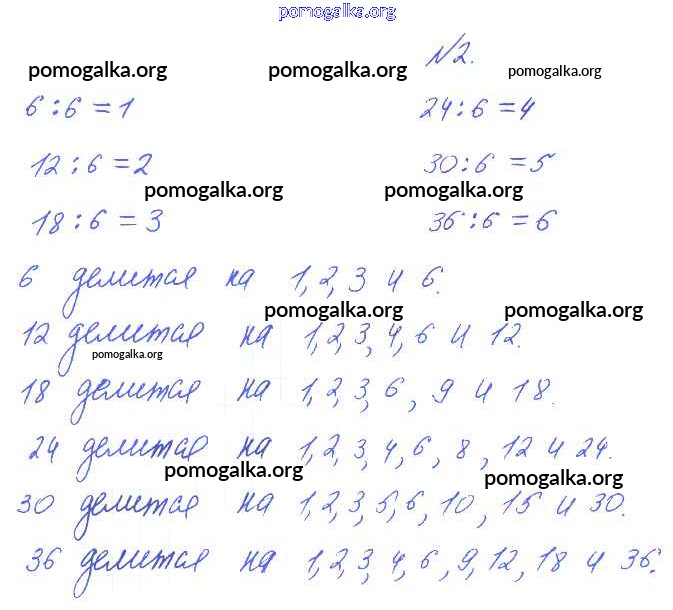 pomogalka.org
№2.
pomogalka.org pomogalka.org pomogalka.org
6 : 6 = 1 24 : 6 = 4
12 : 6 = 2 30 : 6 = 5
pomogalka.org pomogalka.org
18 : 6 = 3 36 : 6 = 6
6 делится на 1, 2, 3 и 6.
pomogalka.org pomogalka.org
12 делится на 1, 2, 3, 4, 6 и 12.
pomogalka.org
18 делится на 1, 2, 3, 6, 9 и 18.
24 делится на 1, 2, 3, 4, 6, 8, 12 и 24.
pomogalka.org pomogalka.org
30 делится на 1, 2, 3, 5, 6, 10, 15 и 30.
36 делится на 1, 2, 3, 4, 6, 9, 12, 18 и 36.